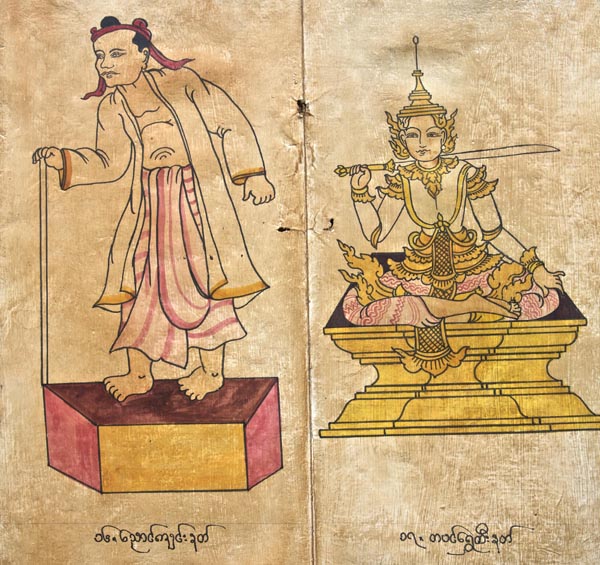 ၁၆၊ ညောင်ကျင်းနတ်
၁၇၊ တပင်ရွှေထီးနတ်